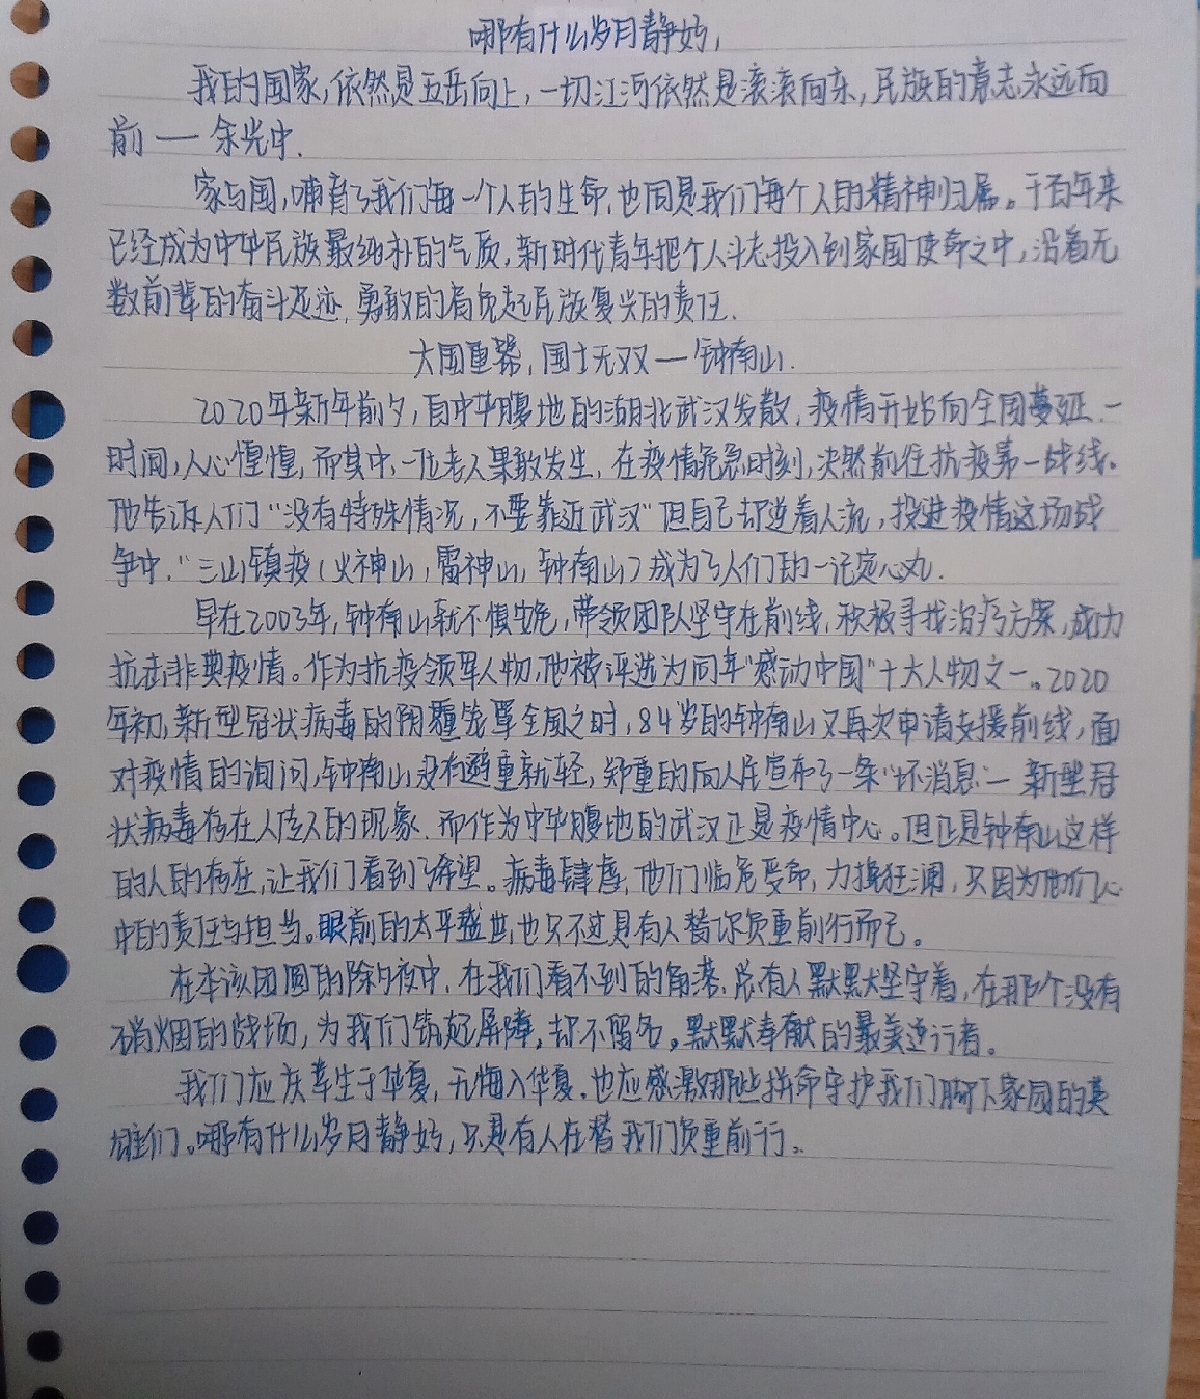 哪有什么岁月静好,
我的国家,依然是五岳向上,一切江河依然是滚滚向东,民族的意志永远向
前 — 余光中.
家与国,哺育了我们每一个人的生命,也同是我们每个人的精神归属。千百年来
已经成为中华民族最纯朴的气质,新时代青年把个人斗志投入到家国使命之中,沿着无
数前辈的奋斗足迹,勇敢的肩负起民族复兴的责任.
大国重器,国士无双 — 钟南山.
2020年新年前夕,自中华腹地的湖北武汉发散,疫情开始向全国蔓延.一
时间,人心惶惶,而其中,一位老人果敢发生,在疫情危急时刻,决然前往抗疫第一战线。
他告诉人们“没有特殊情况,不要靠近武汉”但自己却逆着人流,投进疫情这场战
争中.“三山镇疫(火神山,雷神山,钟南山)成为了人们的一记定心丸.
早在2003年,钟南山就不惧安危,带领团队坚守在前线,积极寻找治疗方案,成功
抗击非典疫情。作为抗疫领军人物,他被评选为同年“感动中国”十大人物之一。2020
年初,新型冠状病毒的阴霾笼罩全国之时,84岁的钟南山又再次申请支援前线,面
对疫情的询问,钟南山没有避重就轻,郑重的向人民宣布了一条“坏消息”— 新型冠
状病毒存在人传人的现象.而作为中华腹地的武汉正是疫情中心。但正是钟南山这样
的人的存在,让我们看到了希望。病毒肆虐,他们临危受命,力挽狂澜,只因为他们心
中的责任与担当。眼前的太平盛世,也只不过是有人替你负重前行而已。
在本该团圆的除夕夜中,在我们看不到的角落,总有人默默坚守着,在那个没有
硝烟的战场,为我们筑起屏障,却不留名,默默奉献的最美逆行者。
我们应庆幸生于华夏,无悔入华夏.也应感激那些拼命守护我们脚下家园的英
雄们。哪有什么岁月静好,只是有人在替我们负重前行。